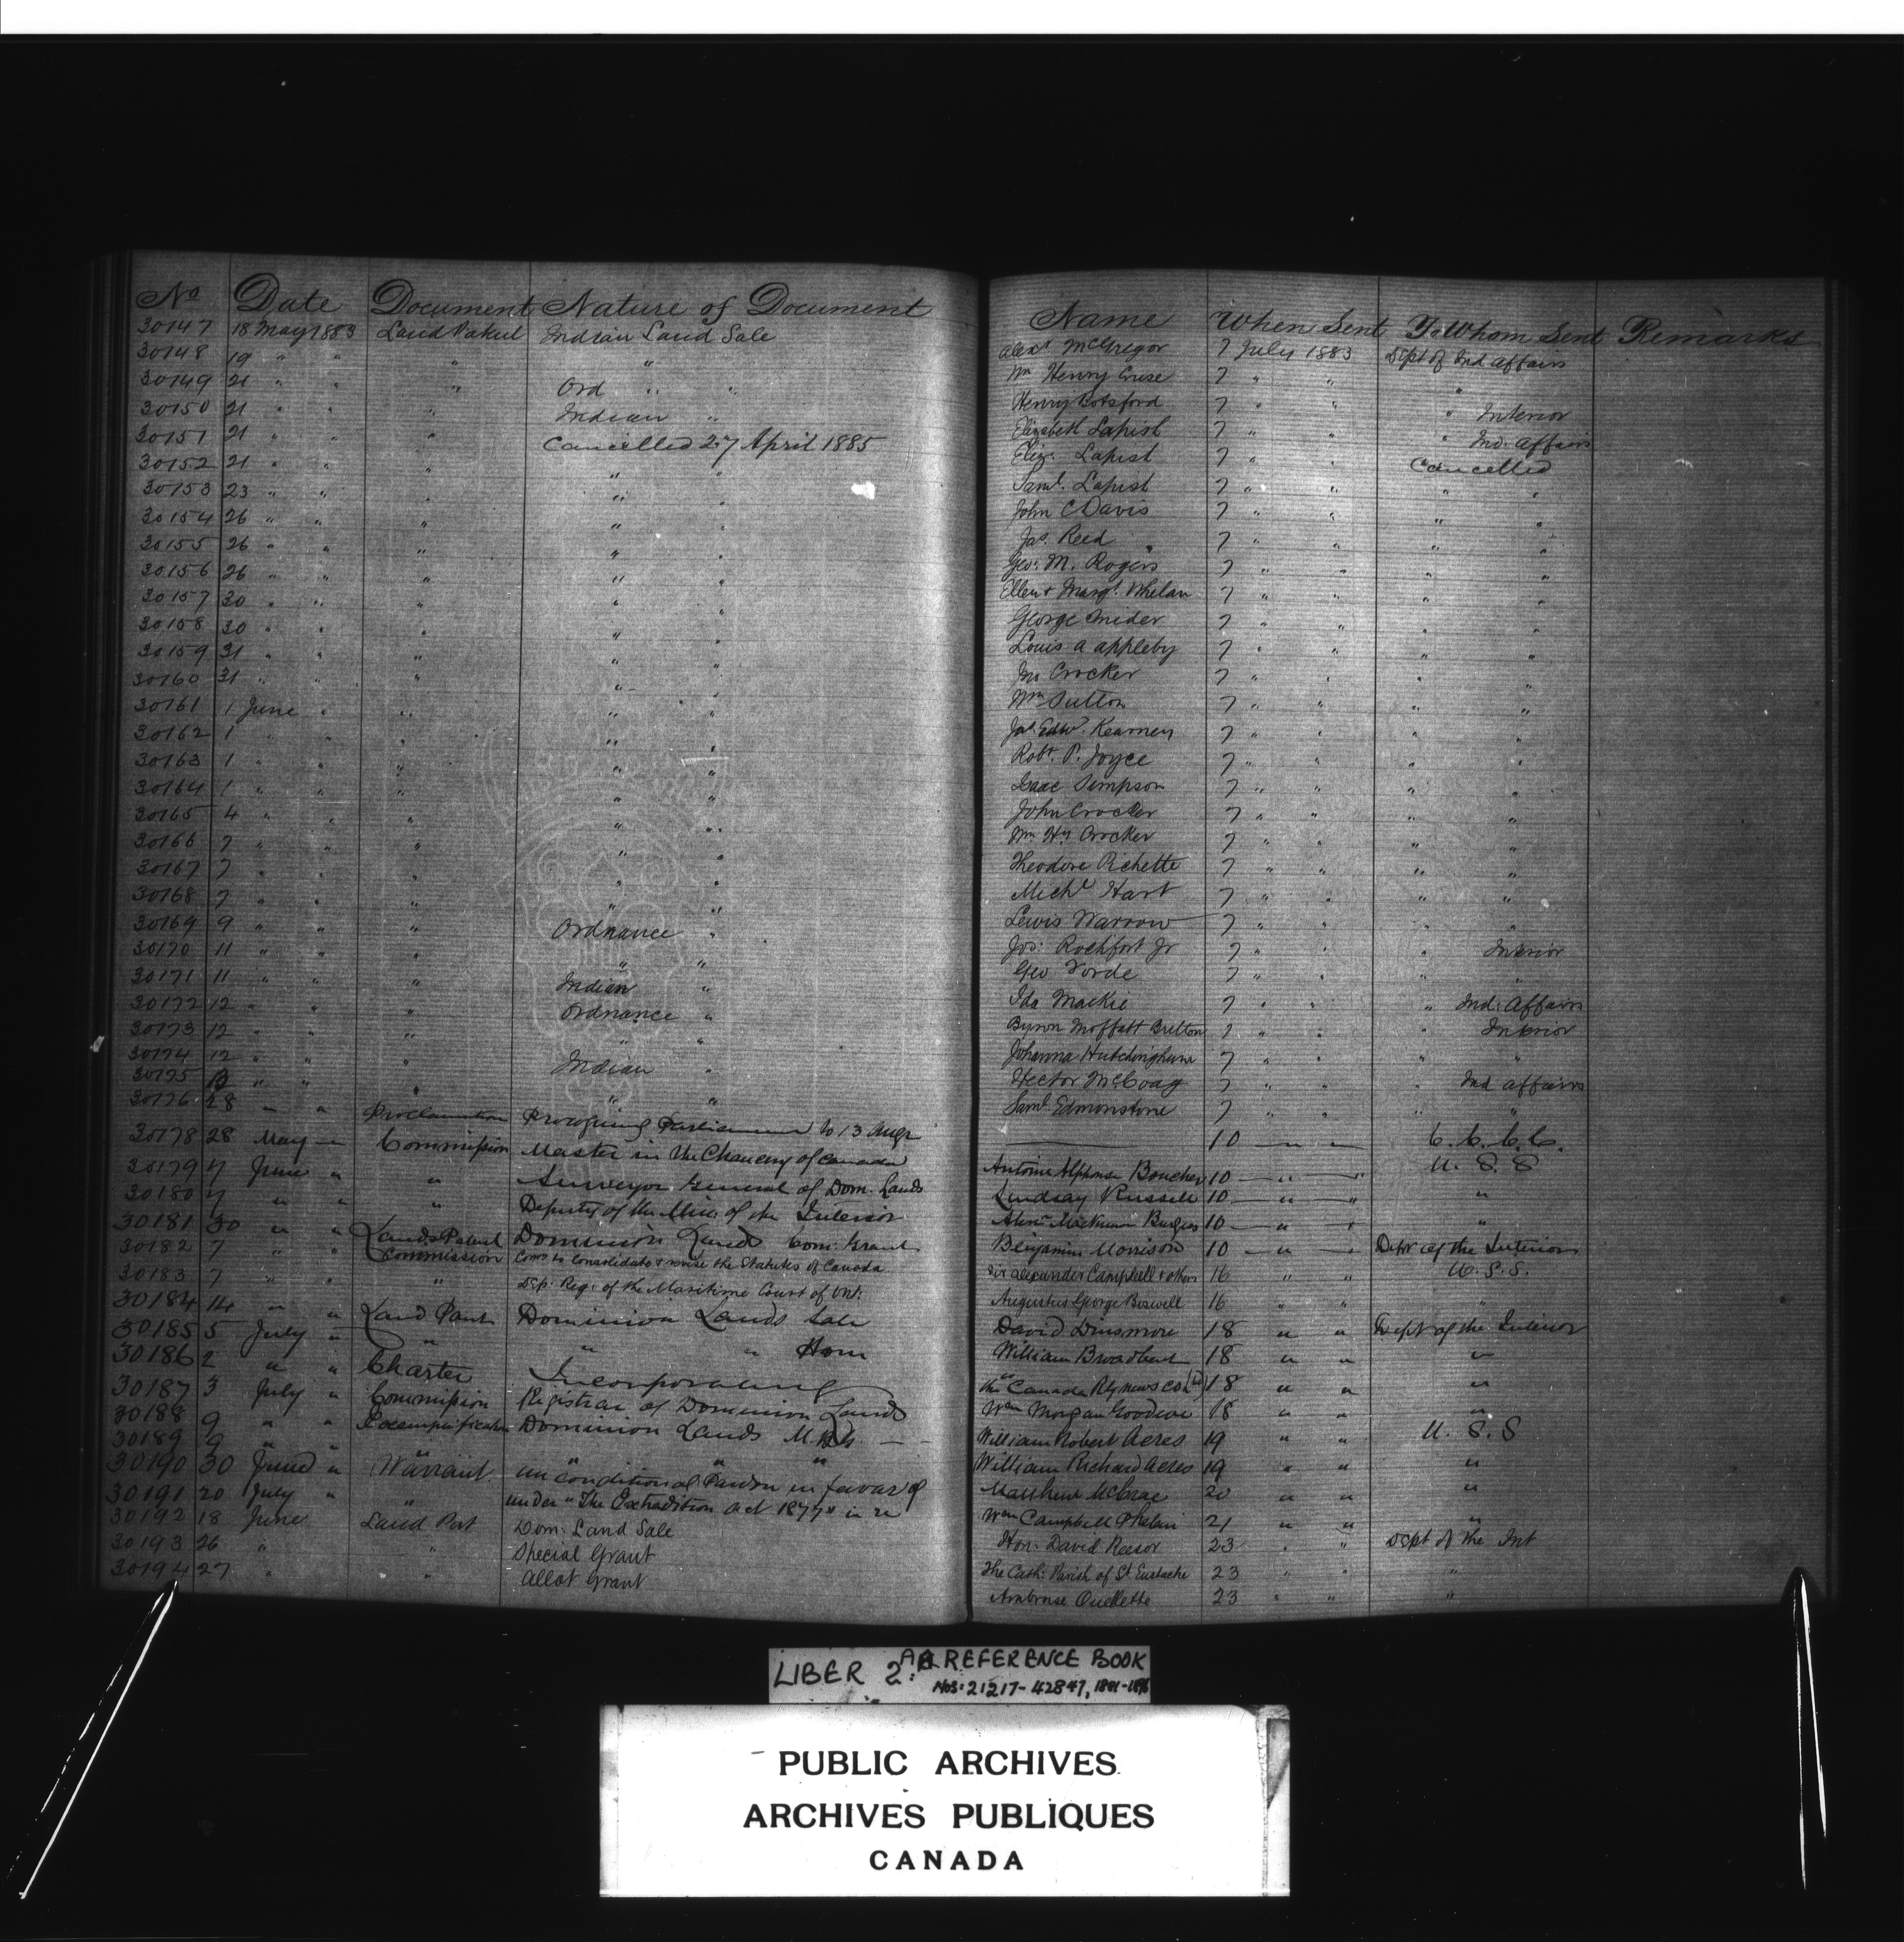 No Date Document Nature of Document
30147 18 May 1883 Land Patent Indian Land Sale
30148 19 " " " "
30149 21 " " " Ord " "
30150 21 " " " Indian "
30151 21 " " " Cancelled 27 April 1885
30152 21 " " " " "
30153 23 " " " " "
30154 26 " " " " "
30155 26 " " " " "
30156 26 " " " " "
30157 30 " " " " "
30158 30 " " " " "
30159 31 " " " " "
30160 31 " " " " "
30161 1 June " " " "
30162 1 " " " " "
30163 1 " " " " "
30164 1 " " " " "
30165 4 " " " " "
30166 7 " " " " "
30167 7 " " " " "
30168 7 " " " " "
30169 9 " " " Ordnance "
30170 11 " " " " "
30171 11 " " " Indian "
30172 12 " " " Ordnance "
30173 12 " " " " "
30174 12 " " " Indian "
30175 13 " " " " "
30176 28 " " Proclamation Proroguing Parliament to 13 Augt
30178 28 May " Commission Master in the Chancery of Canada
30179 7 June " " Surveyor General of Dom. Lands
30180 7 " " " Deputy of the Min. of the Interior
30181 30 " " Lands Patent Dominion Lands Com: Grant
30182 7 " " Commission Coms to consolidate & revise the Statutes of Canada
30183 7 " " " Dep: Reg: of the Maritime Court of Ont:
30184 14 " " Land Patent Dominion Lands Sale
30185 5 July " " " " Hom
30186 2 " " Charter Incorporating
30187 3 July " Commission Registrar of Dominion Lands
30188 9 " " Exemplification Dominion Lands
30189 9 " " " " "
30190 30 June " Warrant unconditional Pardon in favor of
30191 20 July " " under "The Extradition act 1877" in re
30192 18 June Land Pat Dom: Land Sale
30193 26 " " Special Grant
30194 27 " " Allot Grant
Name When Sent To Whom Sent Remarks
Alexr McGregor 7 July 1883 Dept of Ind Affairs
Wm Henry Cruse 7 " " "
Henry Botsford 7 " " " Interior
Elizabeth Lapish 7 " " " Ind. Affairs
Eliz: Lapish 7 " " Cancelled
Saml. Lapish 7 " " " "
John C Davis 7 " " " "
Jas. Reed 7 " " " "
Geo: M. Rogers 7 " " " "
Ellen & Margt. Whelan 7 " " " "
George Snider 7 " " " "
Louis A Appleby 7 " " " "
Jno Crocker 7 " " "
Wm Sutton 7 " " "
Jas Edwd. Kearney 7 " " " "
Robt. P. Joyce 7 " " " "
Isaac Simpson 7 " " " "
John Crocker 7 " " " "
Wm Hy Crocker 7 " " " "
Theodore Pichette 7 " " " "
Michl Hart 7 " " " "
Lewis Warrow 7 " " " "
Jos: Rochfort Jr 7 " " " Interior
Geo Forde 7 " " " "
Ida Mackie 7 " " " Ind: Affairs
Byron Moffatt Britton 7 " " " Interior
Johanna Hutchingham 7 " " " "
Hector McCoag 7 " " " Ind affairs
Saml Edmonstone 7 " " " "
10 " " C.C.C.C.
Antoine Alphonse Boucher 10 " " U.S.S
Lindsay Russell 10 " " "
Alexr Mackinnon Burgess 10 " " "
Benjamin Morrison 10 " " Dept of the Interior
Sir Alexander Campbell & others 16 " " U.S.S.
Augustus George Boswell 16 " " "
David Dinsmore 18 " " Dept of the Interior
William Broadbent 18 " " "
The Canada Rly news Co (Ld) 18 " " "
Wm Morgan Goodeve 18 " " "
William Robert Acres 19 " " U.S.S
William Richard Acres 19 " " "
Matthew McCrae 20 " " "
Wm Campbell Phelan 21 " " "
Hon: David Reesor 23 " " Dept of the Int
The Cath: Parish of St Eustache 23 " " "
Ambroise Ouellette 23 " " "
LIBER 2: AA REFERENCE BOOK
Nos: 21217-42847,
PUBLIC ARCHIVES
ARCHIVES PUBLIQUES
CANADA